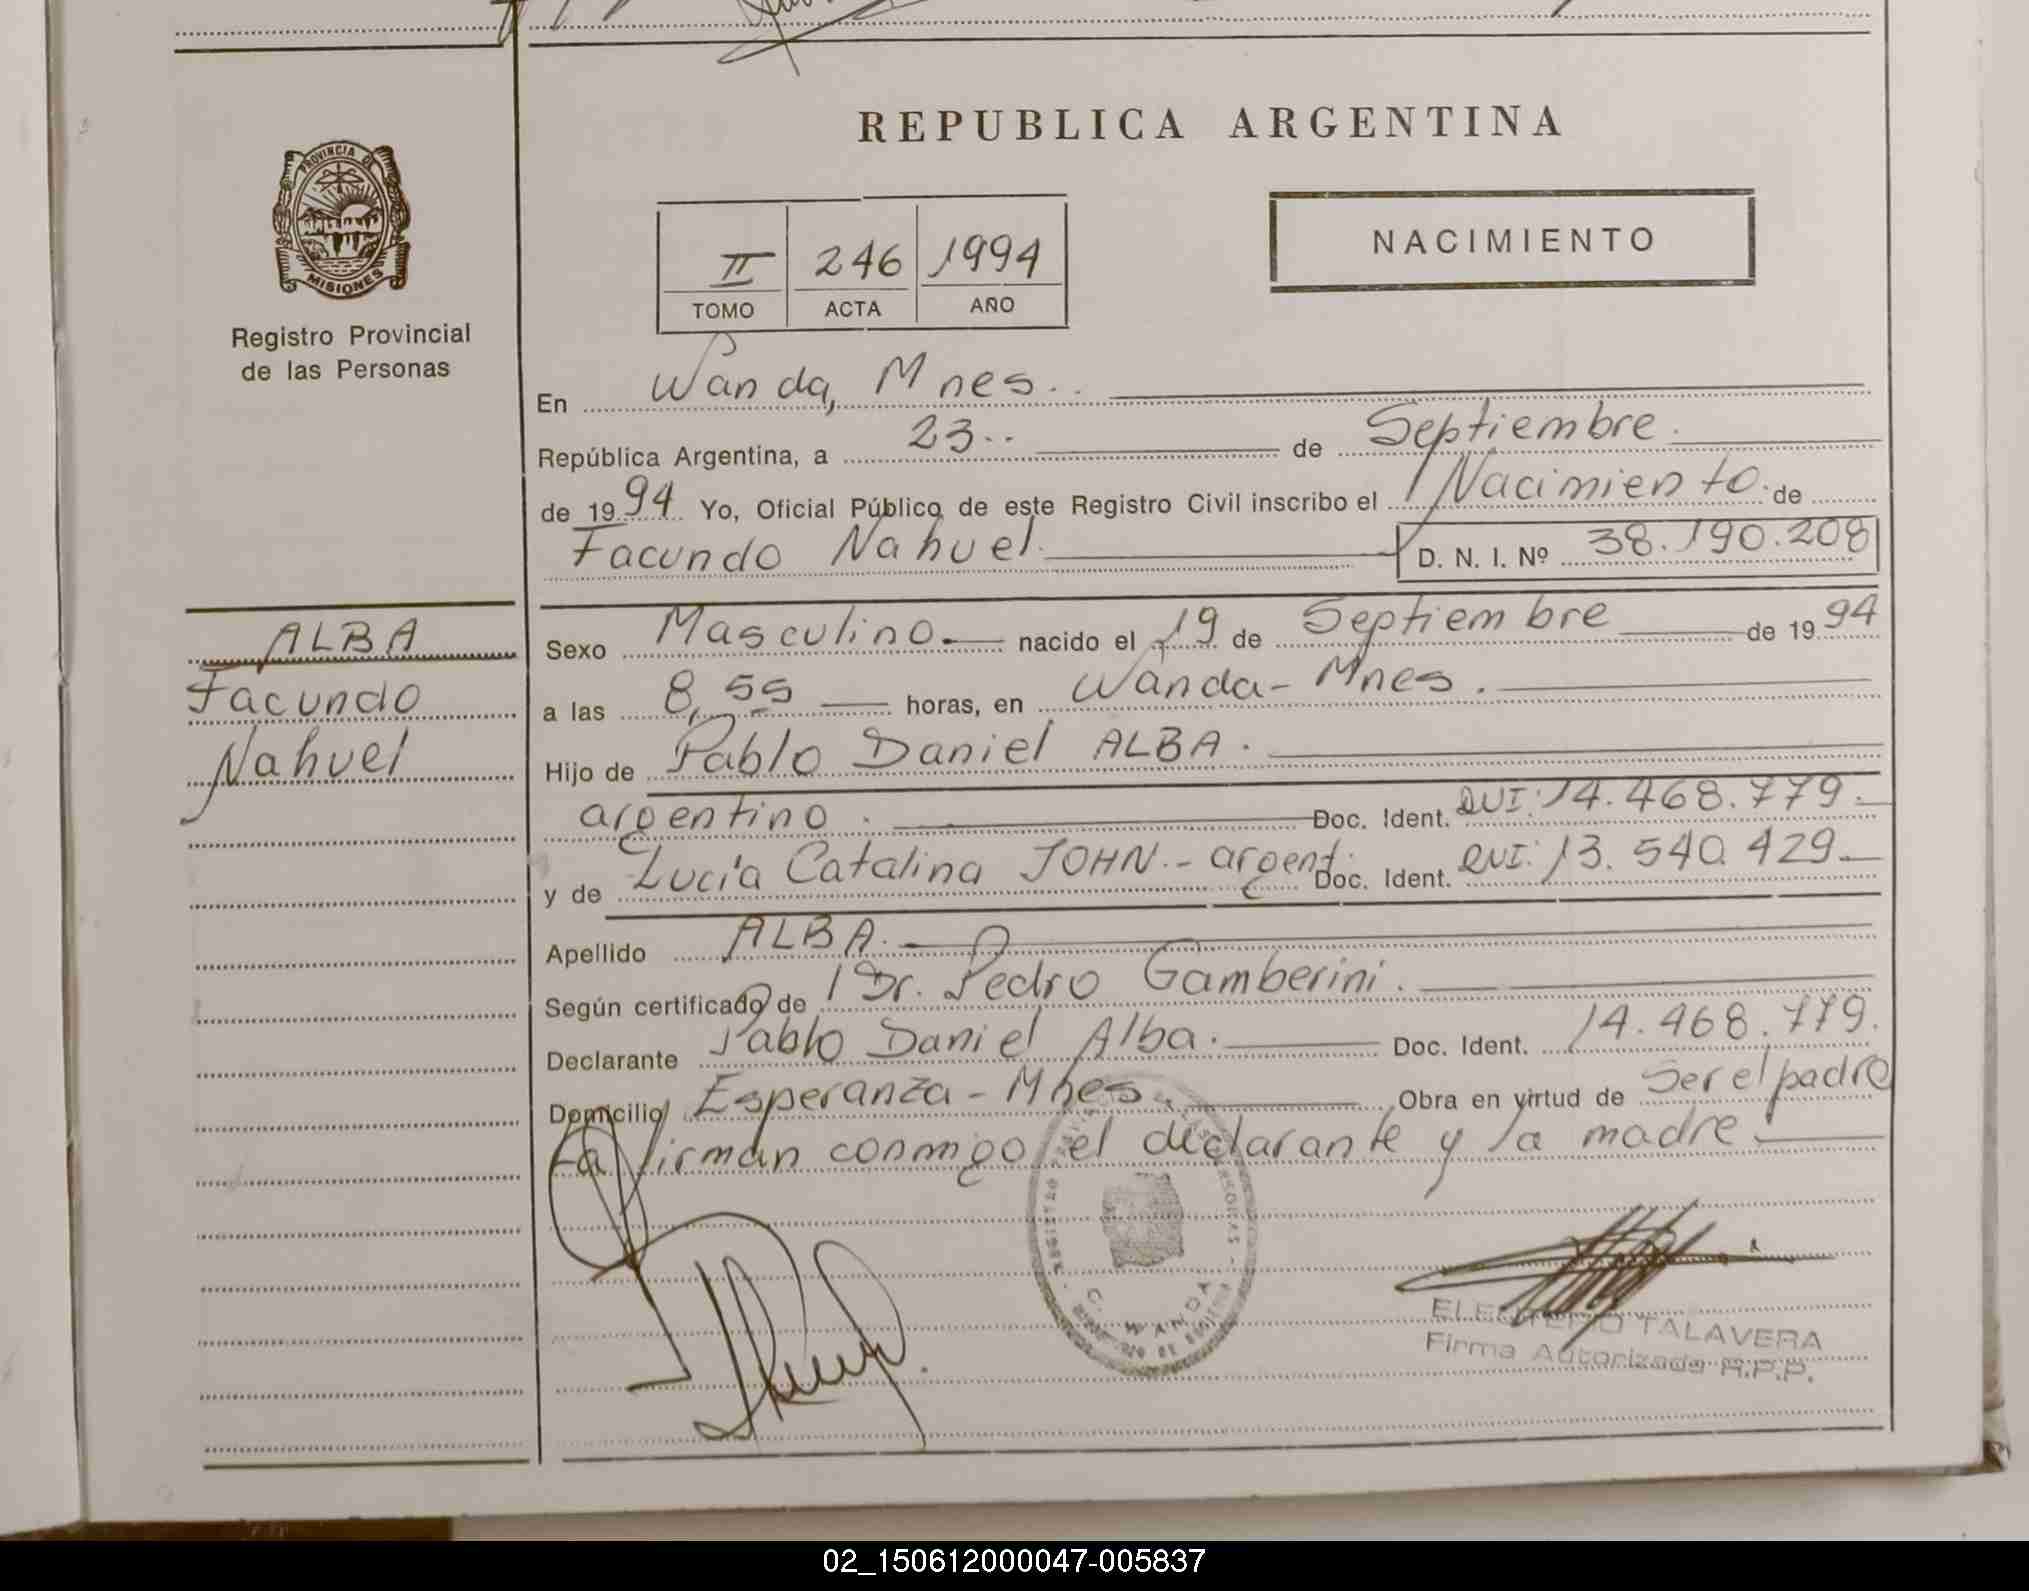 REPUBLICA ARGENTINA
PROVINCIA DE
MISIONES
Registro Provincial
de las Personas
II 246 1994
TOMO ACTA AÑO
NACIMIENTO
En Wanda, Mnes.
República Argentina, a 23 de Septiembre
de 1994 Yo, Oficial Público de este Registro Civil inscribo el Nacimiento de
Facundo Nahuel. D. N. I. Nº 38.190.208
ALBA
Facundo
Nahuel
Sexo Masculino nacido el 19 de Septiembre de 1994
a las 8,55 horas, en Wanda - Mnes.
Hijo de Pablo Daniel ALBA.
argentino. Doc. Ident. DNI: 14.468.779.
y de Lucía Catalina JOHN. - argent. Doc. Ident. DNI: 13.540.429
Apellido ALBA.
Según certificado de Dr. Pedro Gamberini.
Declarante Pablo Daniel Alba. Doc. Ident. 14.468.779.
Domicilio Esperanza - Mnes. Obra en virtud de Ser el padre
firman conmigo el declarante y la madre.
C. WANDA
TALAVERA
Firma Autorizada R.P.P.
02_150612000047-005837